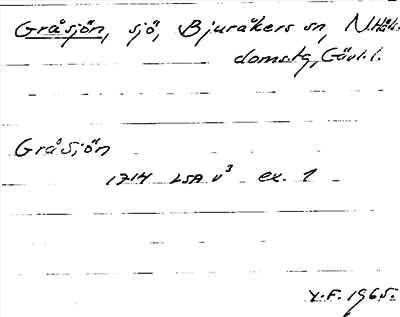 Gråsjön, sjö, Bjuråkers sn, N.Häls.
domstg, Gävl.l.
Gråsjön
1714 LSA v³ ex. 1
Y.F. 1965.